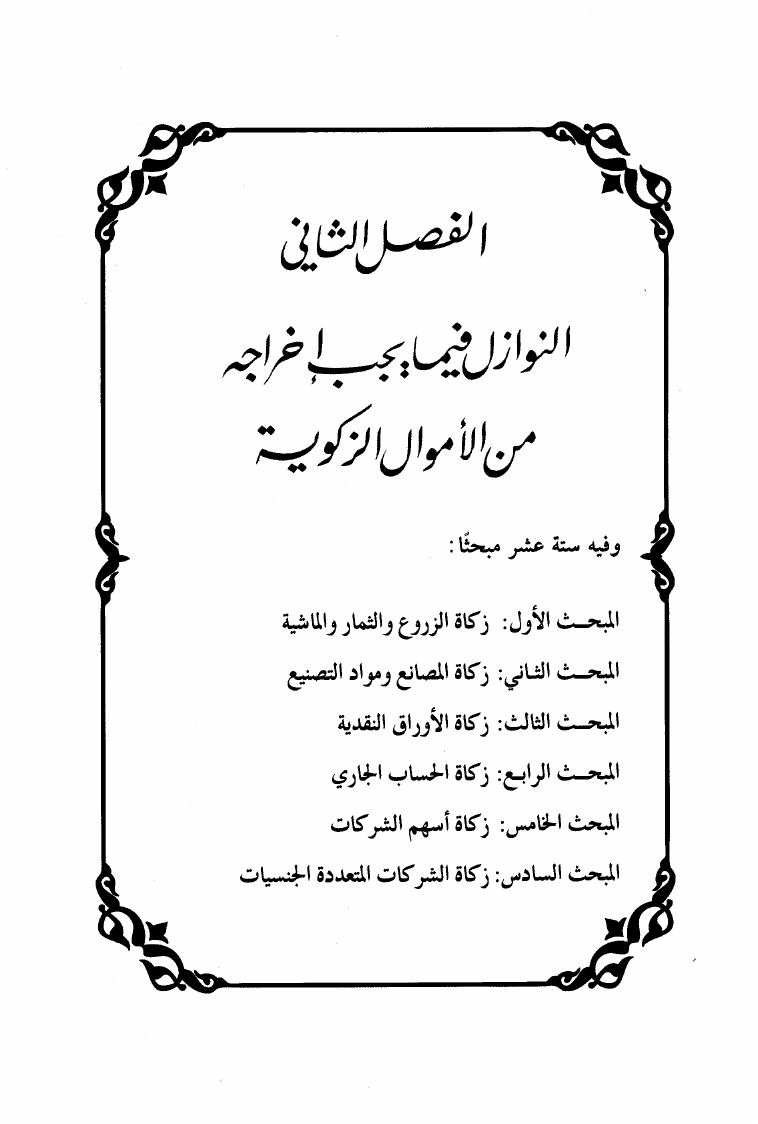 الفصل الثاني
النوازل فيما يجب إخراجه
من الأموال الزكوية
وفيه ستة عشر مبحثًا:
المبحث الأول: زكاة الزروع والثمار والماشية
المبحث الثاني: زكاة المصانع ومواد التصنيع
المبحث الثالث: زكاة الأوراق النقدية
المبحث الرابع: زكاة الحساب الجاري
المبحث الخامس: زكاة أسهم الشركات
المبحث السادس: زكاة الشركات المتعددة الجنسيات